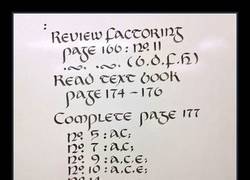 Review Factoring
page 166 : no 11
.~. .~. (b.d.f.h)
Read text book
page 174 - 176
Complete page 177
no 5 : a.c.
no 7 : a.c.
no 9 : a.c.e.
no 10 : a.c.e.